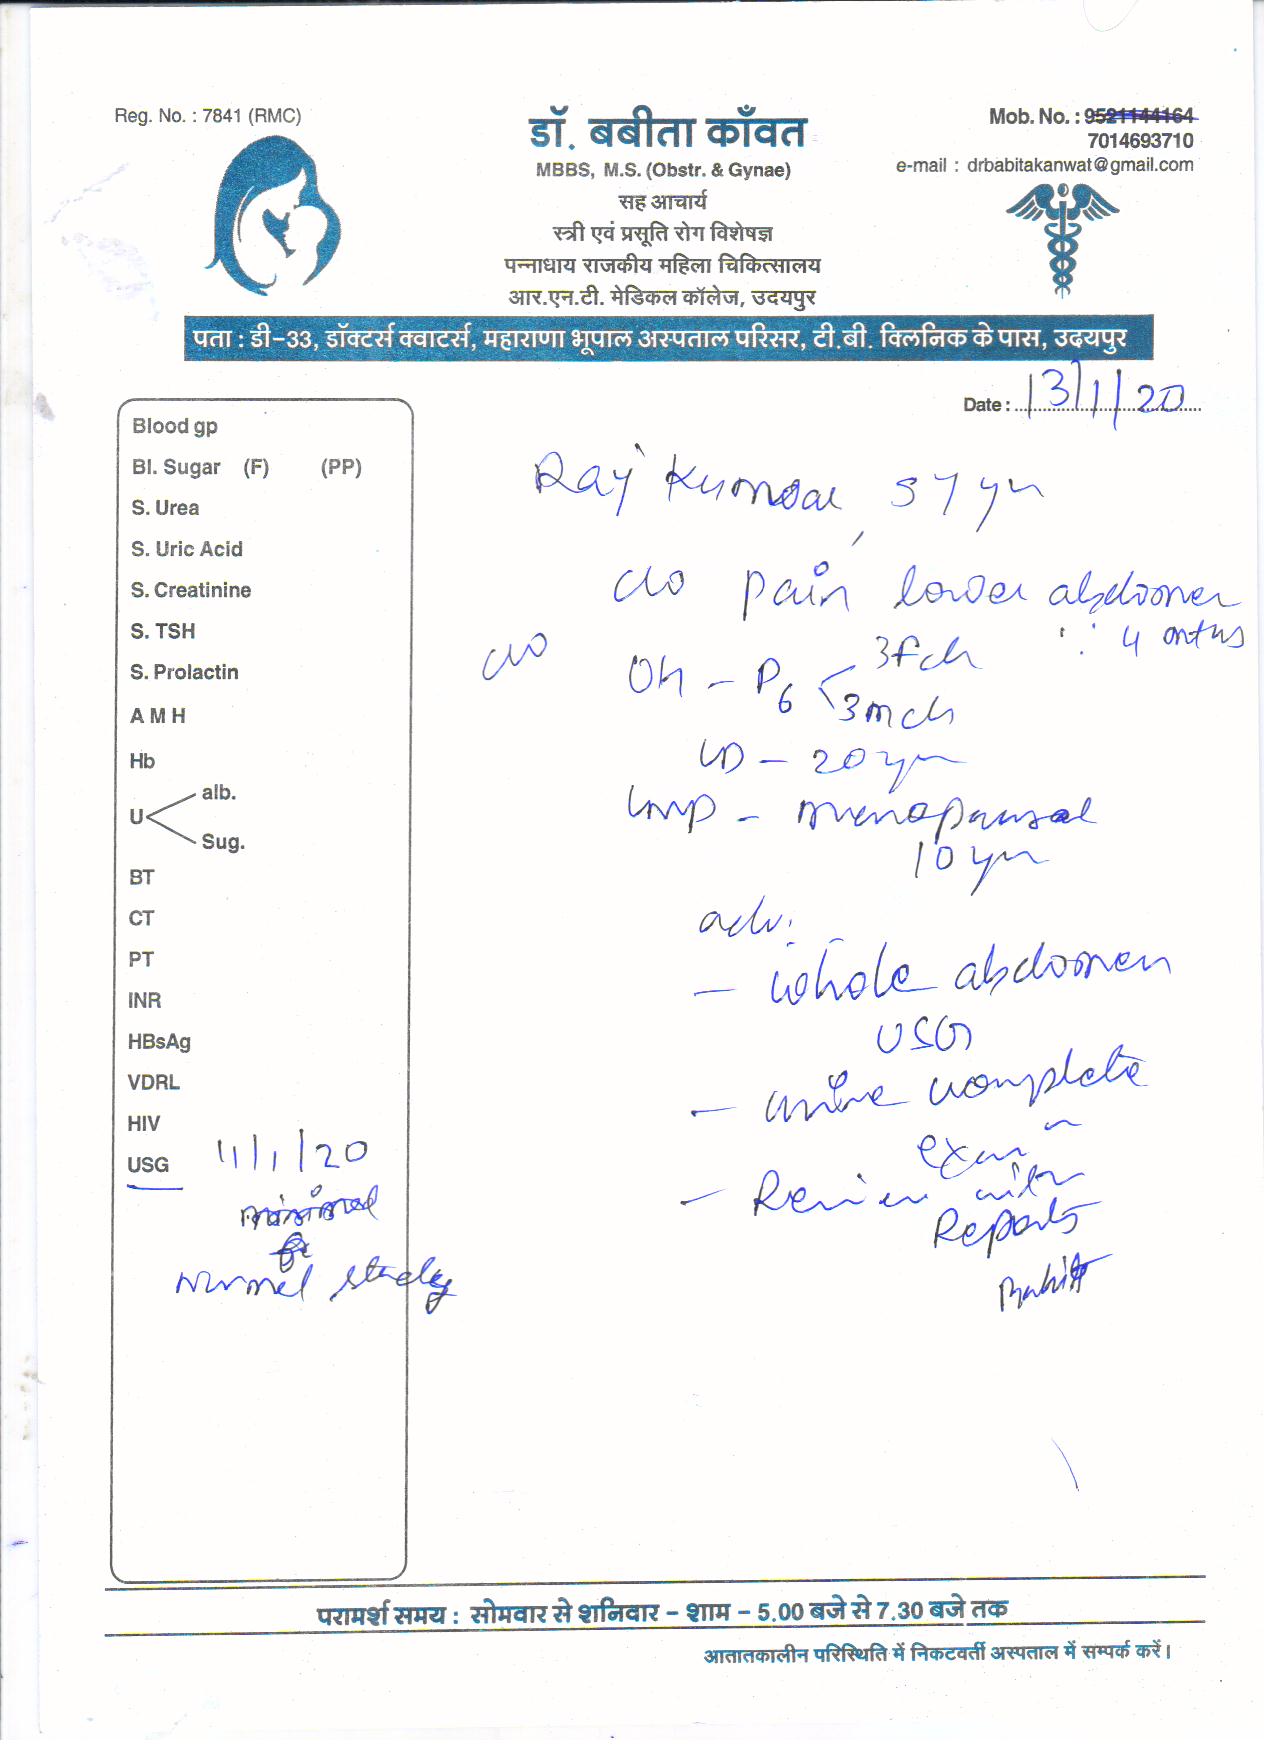 Reg. No. : 7841 (RMC)
डॉ. बबीता काँवत
MBBS, M.S. (Obstr. & Gynae)
सह आचार्य
स्त्री एवं प्रसूति रोग विशेषज्ञ
पन्नाधाय राजकीय महिला चिकित्सालय
आर.एन.टी. मेडिकल कॉलेज, उदयपुर
Mob. No. : 9521144164
7014693710
e-mail : drbabitakanwat@gmail.com
पता : डी-33, डॉक्टर्स क्वाटर्स, महाराणा भूपाल अस्पताल परिसर, टी.बी. क्लिनिक के पास, उदयपुर
Date : 13/1/20
Blood gp
Bl. Sugar (F) (PP)
S. Urea
S. Uric Acid
S. Creatinine
S. TSH
S. Prolactin
A M H
Hb
U alb.
Sug.
BT
CT
PT
INR
HBsAg
VDRL
HIV
USG 11/1/20
normal study
Raj Kumar, 57 yr
c/o pain lower abdomen
4 mths
c/o
OH - P6 3 fch
3 mch
LD - 20 yr
LMP - menopausal
10 yr
adv.
- whole abdomen
USG
- urine complete
exam
- Review with
Reports
परामर्श समय : सोमवार से शनिवार - शाम - 5.00 बजे से 7.30 बजे तक
आतातकालीन परिस्थिति में निकटवर्ती अस्पताल में सम्पर्क करें।